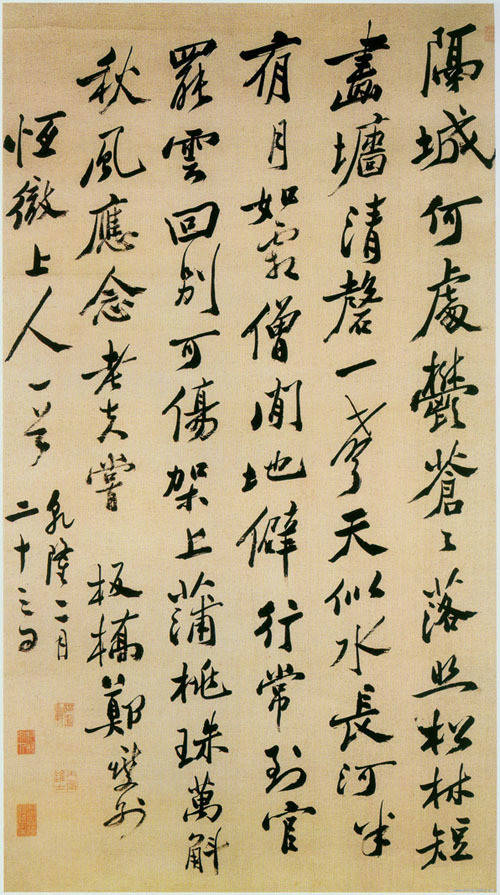 隔城何處鬱蒼々落照松林短
畫墻清磬一聲天似水長河半
有月如霜僧閒地僻行常到官
罷雲回別可傷架上蒲桃珠萬斛
秋風應念老夫嘗 板橋鄭燮
恒徹上人一首
乾隆二月
二十三日